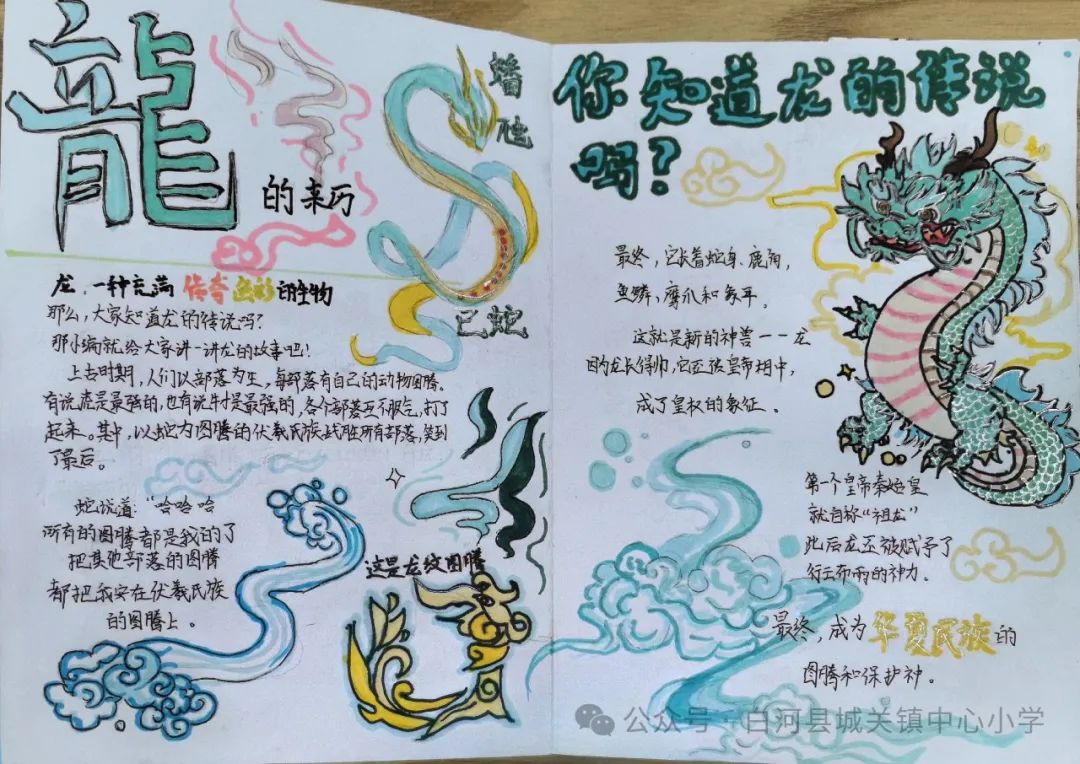 龍
的来历
蟠虺
巳蛇
龙,一种充满传奇色彩的生物
那么,大家知道龙的传说吗?
那小编就给大家讲一讲龙的故事吧!
上古时期,人们以部落为生,每部落有自己的动物图腾。
有说虎是最强的,也有说牛才是最强的,各个部落互不服气,打了
起来。其中,以蛇为图腾的伏羲氏族战胜所有部落,笑到
了最后。
蛇说道:“哈哈哈
所有的图腾都是我的了
把其他部落的图腾
都把我安在伏羲氏族
的图腾上。
这是龙纹图腾
你知道龙的传说
吗?
最终,它长着蛇身、鹿角,
鱼鳞,鹰爪和象耳。
这就是新的神兽——龙
因为龙长得帅,它还被皇帝相中,
成了皇权的象征。
第一个皇帝秦始皇
就自称“祖龙”
此后龙还被赋予了
行云布雨的神力。
最终,成为华夏民族的
图腾和保护神。
公众号·白河县城关镇中心小学